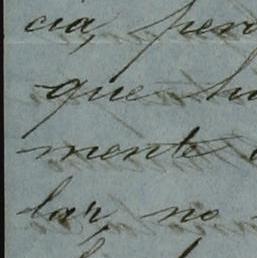 cia, per
que hu
mente
lar, no